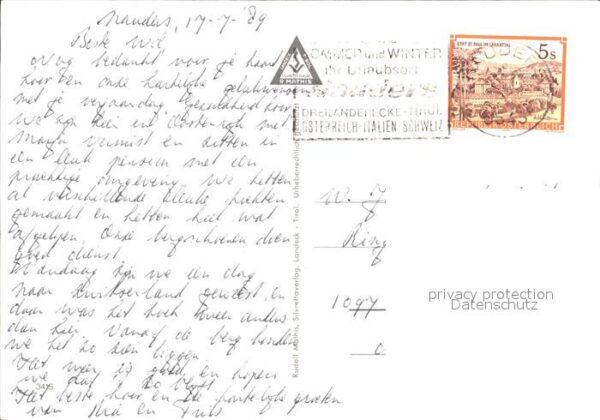 Nauders, 17-7-'89
Beste Wil,
Nog bedankt voor je kaart
hoor en onze hartelijke gelukwensen
met je verjaardag
We zijn hier in Oostenrijk met
en zitten in
een leuk pension met een
prachtige omgeving. We hebben
al verschillende leuke tochten
gemaakt en hebben heel wat
afgelopen. Onze bergschoenen doen
goed dienst.
Vandaag zijn we een dag
naar Zwitserland geweest en
daar was het toch weer anders
dan hier. Vanaf de berg konden
we het zo zien liggen.
Het weer is goed en hopen
we dat zo blijft
Het beste hoor en de hartelijke groeten
van Ria en
R. MATHIS
SOMMER und WINTER
Ihr Urlaubsort
Nauders
DREILÄNDERECKE - TIROL
ÖSTERREICH-ITALIEN-SCHWEIZ
STIFT ST. PAUL IM LAVANTTAL
5 S
REPUBLIK ÖSTERREICH
Rudolf Mathis, Silvrettaverlag, Landeck - Tirol, Urheberrechtlich geschützt
W. J
Ring
1097
privacy protection
Datenschutz